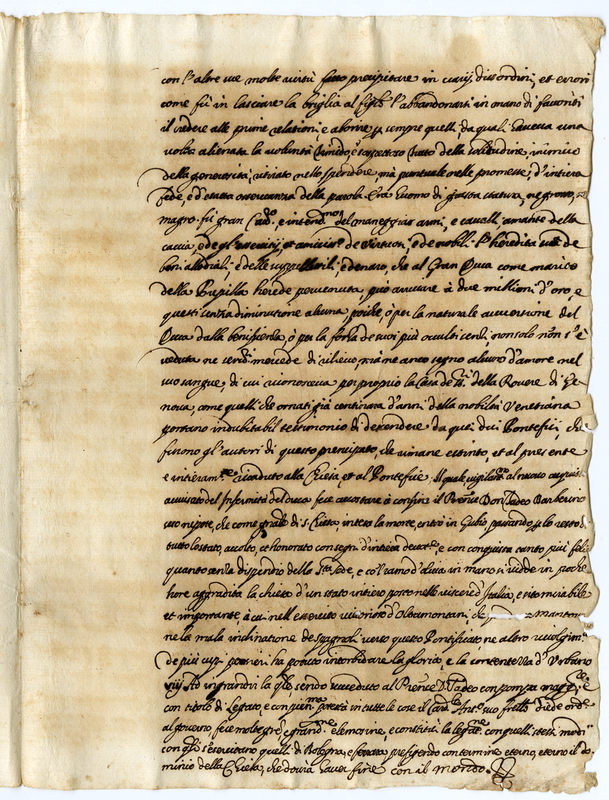 con l'altre sue molte virtù fatto precipitare in varij disordini, et errori
come fù in lasciare la briglia al l'abbandonarsi in mano di favoriti
il credere alle prime relationi, e aborire sempre quelli, da quali haveva una
volta alienata la volontà timido, e sospettoso tutto della solitudine, inimico
della generosità, misurato nello spendere, mà puntuale nelle promesse, d'intiera
fede, e d'esatta osservanza della parola. Era huomo di giusta statura, ne grosso, ne
magro. fù gran e intend. del maneggiar armi, e cavalli, amante della
caccia, e de gl'essercitij, et amico de Virtuosi, e de nobili. L'heredità sua de
beni allodiali, e delle suppellettili, e denaro, che al Gran Duca come marito
della Pupilla herede pervenuta, può arrivare à due millioni d'oro, e
questi senza diminutione alcuna, poiche, ò per la naturale aversione del
Duca dalla beneficenza, ò per la forza de suoi più occulti non solo non s'è
veduta ne mercede di rilievo, mà ne anco segno alcuno d'amore nel
suo sangue, di cui riconosceva per proprio la Casa de della Rovere di Ge-
nova, come quelli che ornati già centinara d'anni della nobiltà Venetiana
portano indubitabil testimonio di descendere da quei dui Pontefici, che
furono gl'autori di questo prencipato, che rimane estinto, et al presente
e intieram.te ricaduto alla Chiesa, et al Pontefice. Il quale vigilan.mo al nuovo acquisto
avvisato dell'Infermità del duca fece accostare à confini il Prencipe Don Tadeo Barberino
suo nipote, che come di S. Chiesa intesa la morte, entrò in Gubio, passando per lo resto di
tutto lo stato, accolto, et honorato con segni d'intiera e con conquista tanto più felice
quanto senza dispendio della S.ta Sede, e co'l ramo d'oliva in mano si vidde in poche
hore aggradita la chiesa d'un stato intiero posto nelle viscere d'Italia, e ritornerà bile
et importante, à cui nell'essercito d'Oltramontani, de Mantova
ne la mala inclinatione de spagnoli verso questo Pontificato ne altro
de più cupi pensieri ha potuto intorbidare la gloria, e la contentezza d'Urbano
viij. Ad ingrandirla q.le sendo succeduto al Prencipe D. Tadeo con pompa magg.re, e
con titolo di Legato, e con potestà in tutte le cose il Card. Ant.o suo fratello diede ord.e
al governo, fece molte gratie, e grandi elemosine, e constituì la con quelli stessi modi
con q.li s'essercitano quelli di Bologna, e ferrara, prefigendo con termine eterno, eterno il do-
minio della Chiesa, che dovrà haver fine con il mondo.